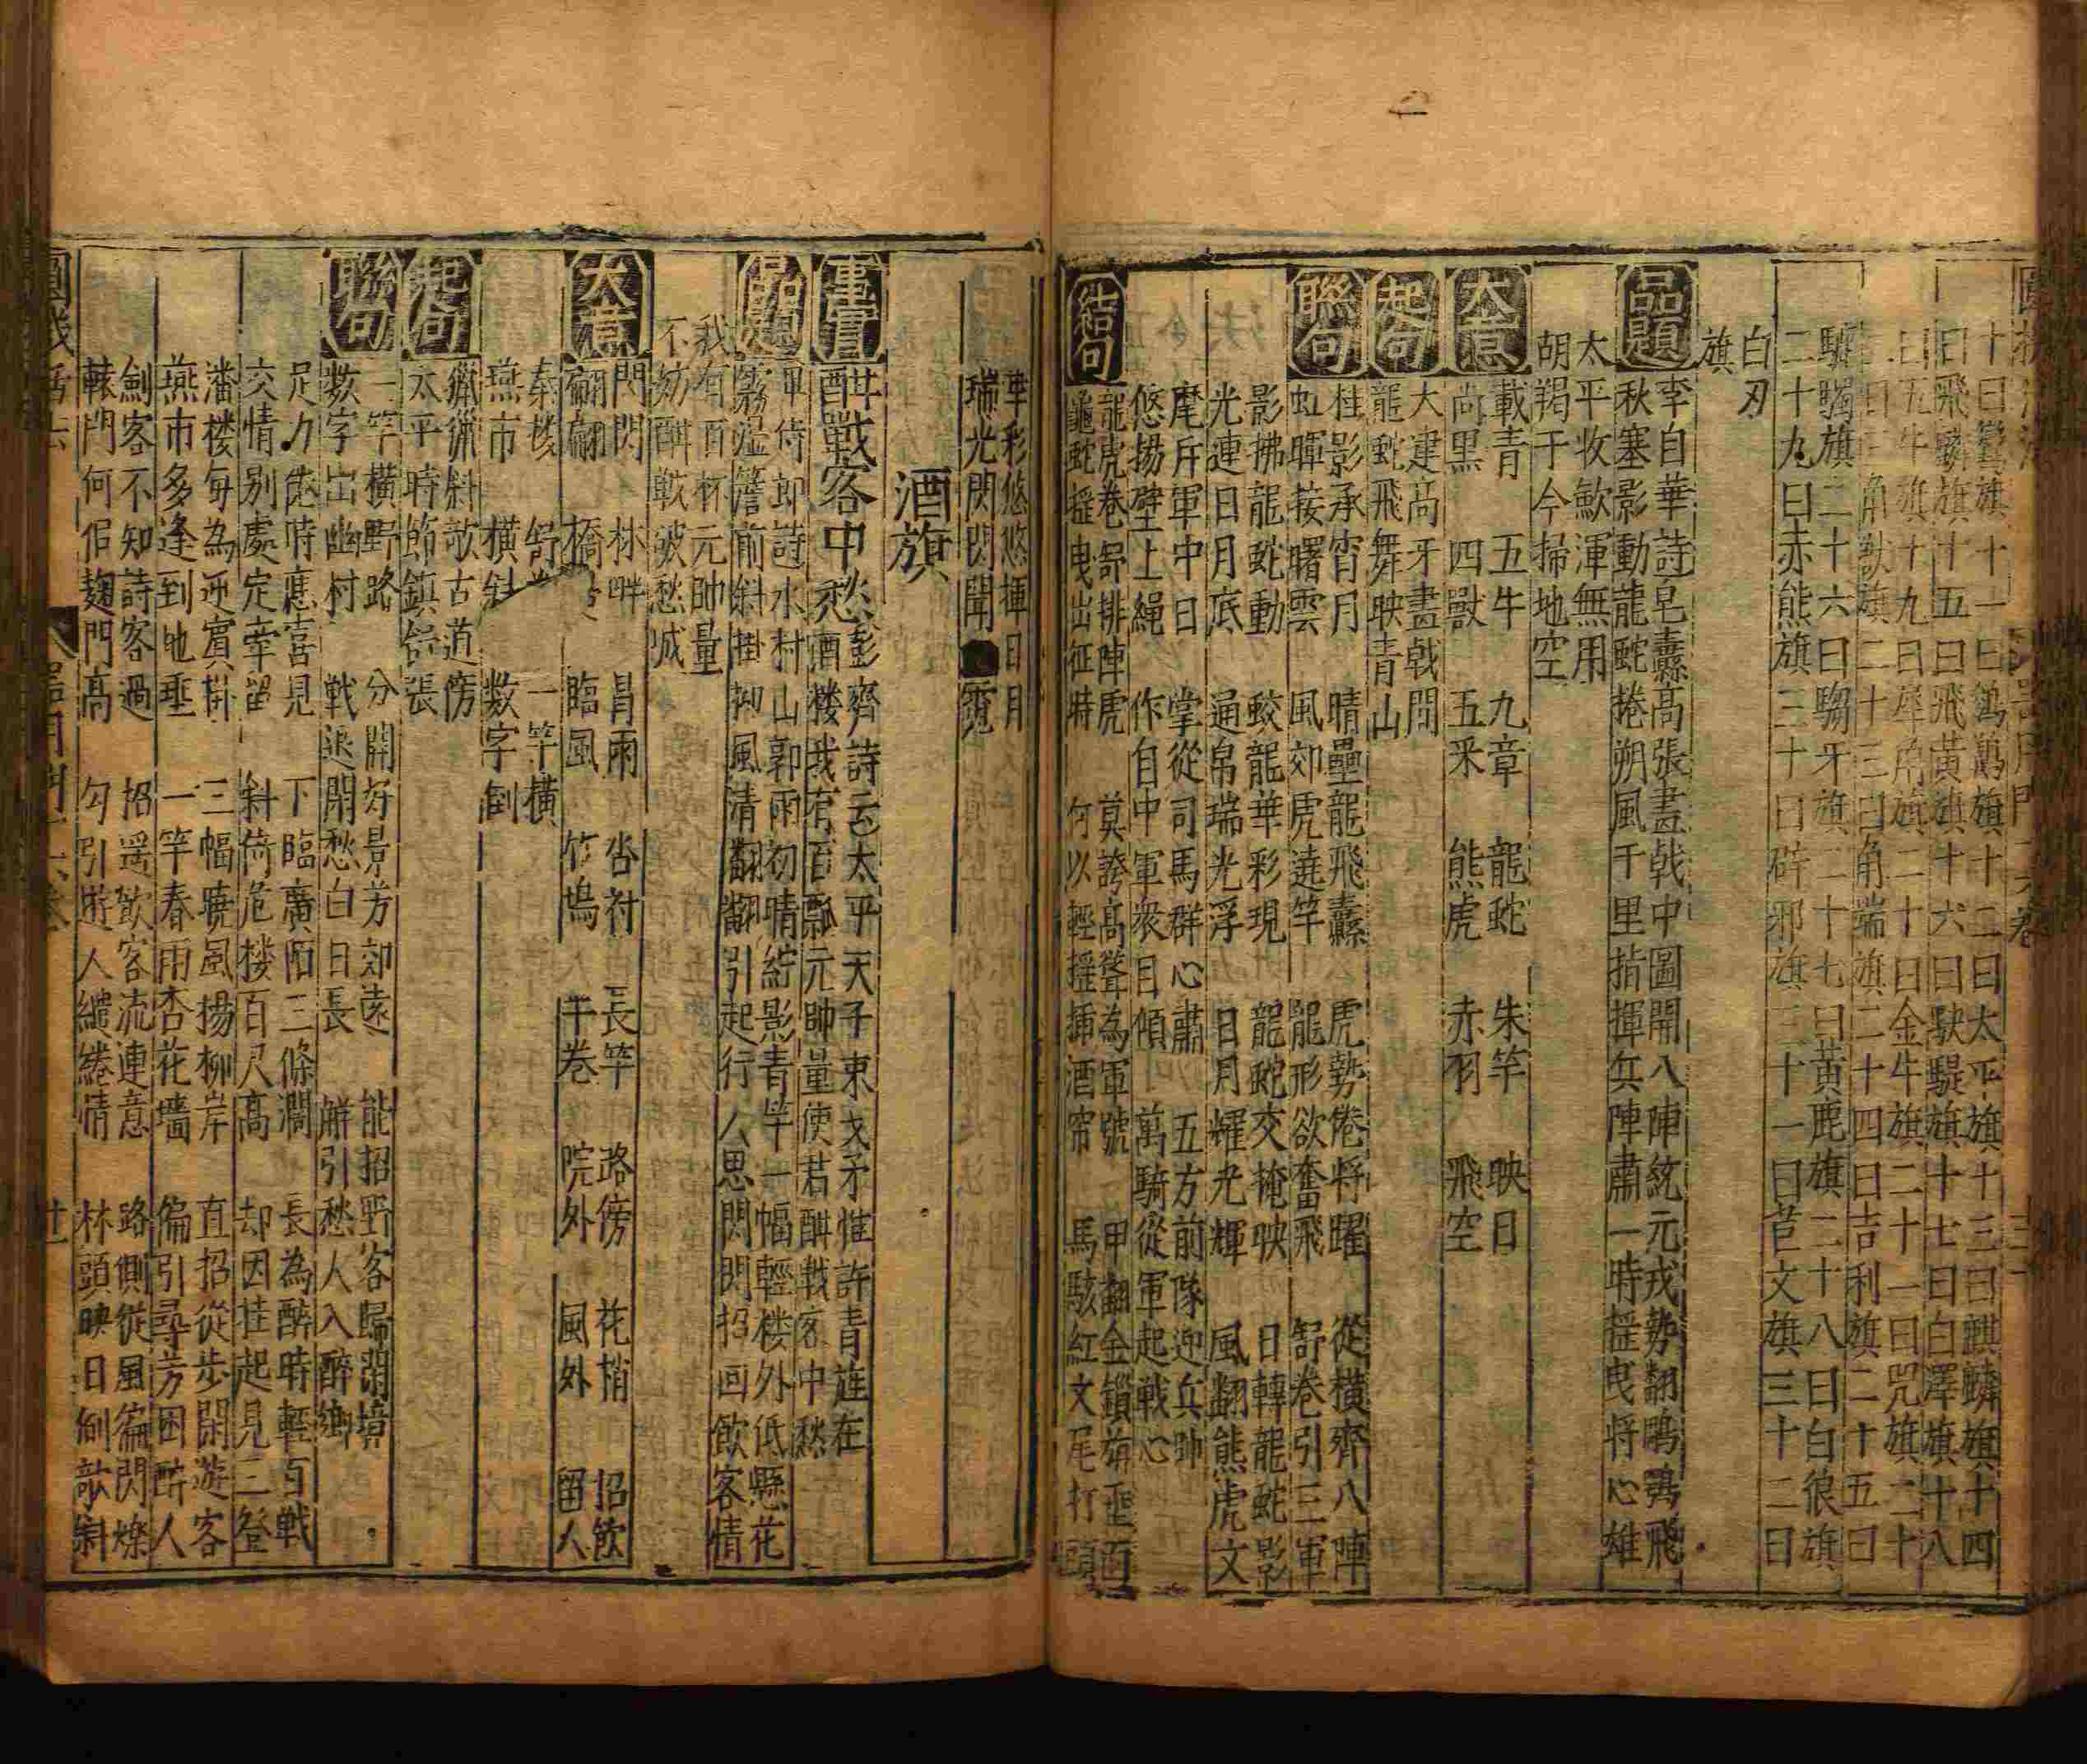 十曰鸞旗十一曰鶴鷮旗十二曰太平旗十三曰麒麟旗十四
曰飛麟旗十五曰飛黃旗十六曰駃騠旗十七曰白澤旗十八
曰五牛旗十九曰犀角旗二十曰金牛旗二十一曰咒旗二十
二曰三角獸旗二十三曰角端旗二十四曰吉利旗二十五曰
騼䮷旗二十六曰騶牙旗二十七曰黃鹿旗二十八曰白狼旗
二十九曰赤熊旗三十曰辟邪旗三十一曰苣文旗三十二曰
白刃
旗
品題
李白華詩皂纛高張畫戟中圖開八陣統元戎勢翻鵬鶚飛
秋塞影動龍蛇捲朔風千里指揮兵陣肅一時揺曳將心雄
太平收斂渾無用
胡羯于今掃地空
大意
載青 五牛 九章 龍蛇 朱竿 映日
尚黑 四獸 五采 熊虎 赤羽 飛空
起句
大建高牙畫戟間
龍蛇飛舞映青山
聯句
桂影承宵月 晴壘龍飛纛 虎勢倦將躍 從橫齊八陣
虹暉接曙雲 風郊虎遶竿 龍形欲奮飛 舒卷引三軍
影拂龍蛇動 蛟龍華彩現 龍蛇交掩映 日轉龍蛇影
光連日月底 通帛瑞光浮 日月耀光輝 風翻熊虎文
麾斥軍中日 掌從司馬群心肅 五方前隊迎兵帥
悠揚壁上繩 作自中軍衆目傾 萬騎從軍起戰心
結句
龍虎卷舒排陣虎 莫誇高聳為軍號 甲翻金鎖旃垂面
龜蛇揺曳出征時 何以輕揺插酒帘 馬駭紅文尾打頭
華彩悠悠揮日月
瑞光閃閃閙雲霓
酒旗
事實
酣戰客中愁
彭齊詩云太平天子束戈矛惟許青旌在
酒楼我有百瓢元帥量使君酣戰客中愁
品題
軍侍郎詩水村山郭雨初晴綻影青竿一幅輕楼外低懸花
霧湿簷前斜掛柳風清翩翩引起行人思閃閃招回飲客情
我有百杯元帥量
不妨酣戰破愁城
大意
閃閃 林畔 昌雨 杏村 長竿 路傍 花梢 招飲
翩翩 橋 臨風 竹塢 半巻 院外 風外 留人
秦楼 舒 一竿橫
燕市 橫斜 数字倒
起句
斜欹古道傍
太平時節鎮鋪張
聯句
一竿橫野路 分開好景芳郊遠 能招野客歸閑境
数字出幽村 戰退閑愁白日長 解引愁人入醉鄉
足力倦時應喜見 下臨廣陌三條濶 長為醉時輕百戰
交情別處定牽留 斜倚危楼百尺高 却因挂起見三登
潘楼每為迎賓掛 三幅曉風揚柳岸 直招從步閑遊客
燕市多逢到地垂 一竿春雨杏花墻 偏引尋芳困醉人
劍客不知詩客過 招遥飲客流連意 路側從風徧閃爍
轅門何似麹門高 勾引遊人繾綣情 林頭映日倒欹斜